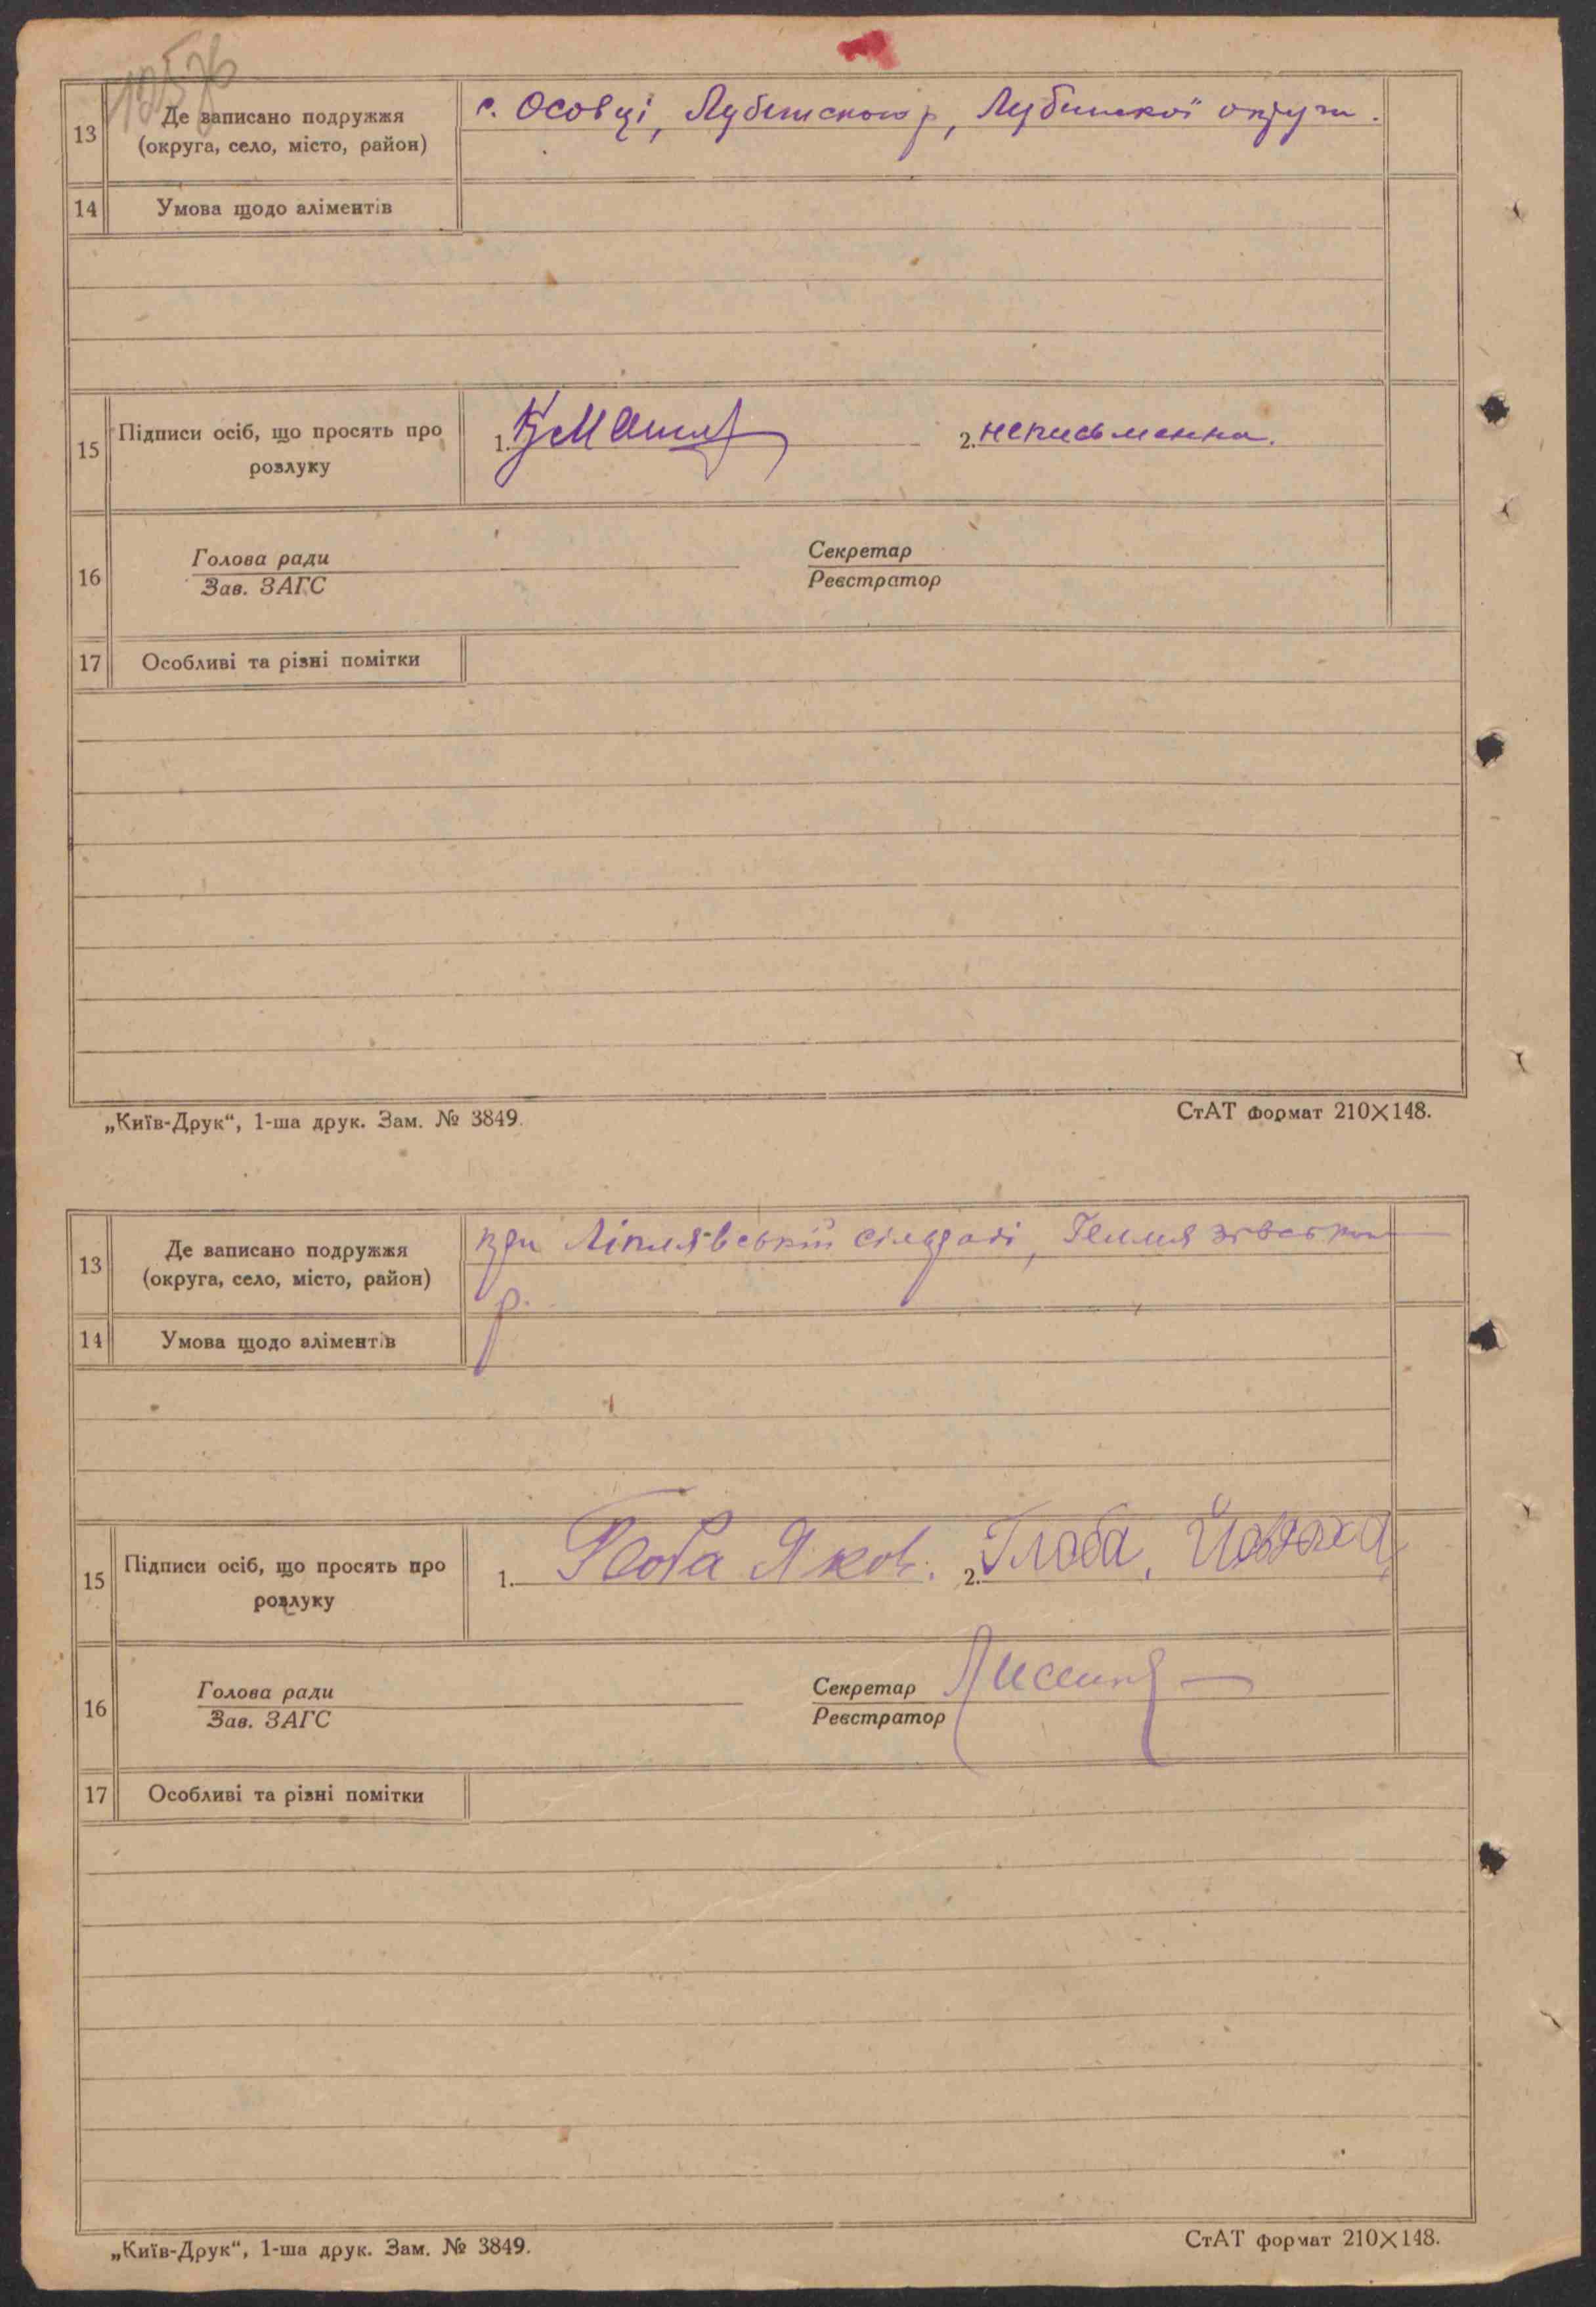 13
Де записано подружжя
(округа, село, місто, район)
с. Осовці, Лубенского р, Лубенскої округи.
14
Умова щодо аліментів
15
Підписи осіб, що просять про
розлуку
1.
2. неписьменна.
16
Голова ради
Зав. ЗАГС
Секретар
Реєстратор
17
Особливі та різні помітки
„Київ-Друк“, 1-ша друк. Зам. № 3849.
СтАТ формат 210×148.
13
Де записано подружжя
(округа, село, місто, район)
при Ліплявській сільраді,
р.
14
Умова щодо аліментів
15
Підписи осіб, що просять про
розлуку
1. Глоба Яков. 2. Глоба,
16
Голова ради
Зав. ЗАГС
Секретар
Реєстратор
17
Особливі та різні помітки
„Київ-Друк“, 1-ша друк. Зам. № 3849.
СтАТ формат 210×148.